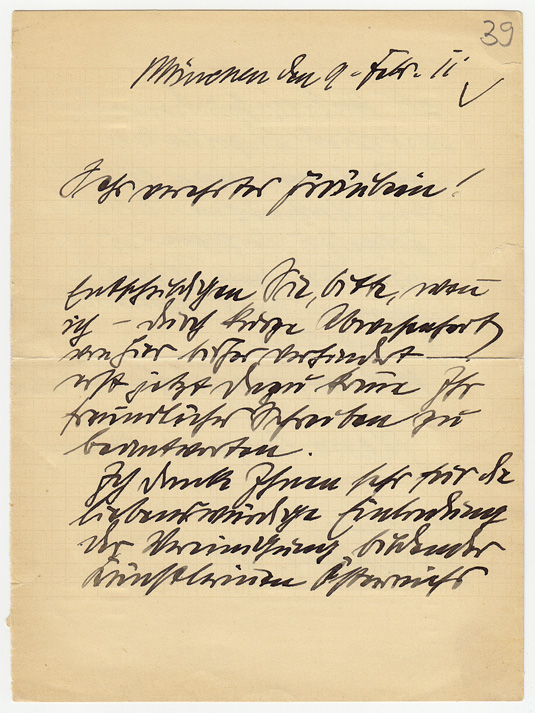 39
München den 9. Febr. 11
Sehr verehrtes Fräulein!
Entschuldigen Sie, bitte, wenn
ich – durch kurze Abwesenheit
von hier bisher verhindert –
erst jetzt dazu komme Ihr
freundliches Schreiben zu
beantworten.
Ich danke Ihnen sehr für die
liebenswürdige Einladung
der Vereinigung bildender
Künstlerinnen Österreichs